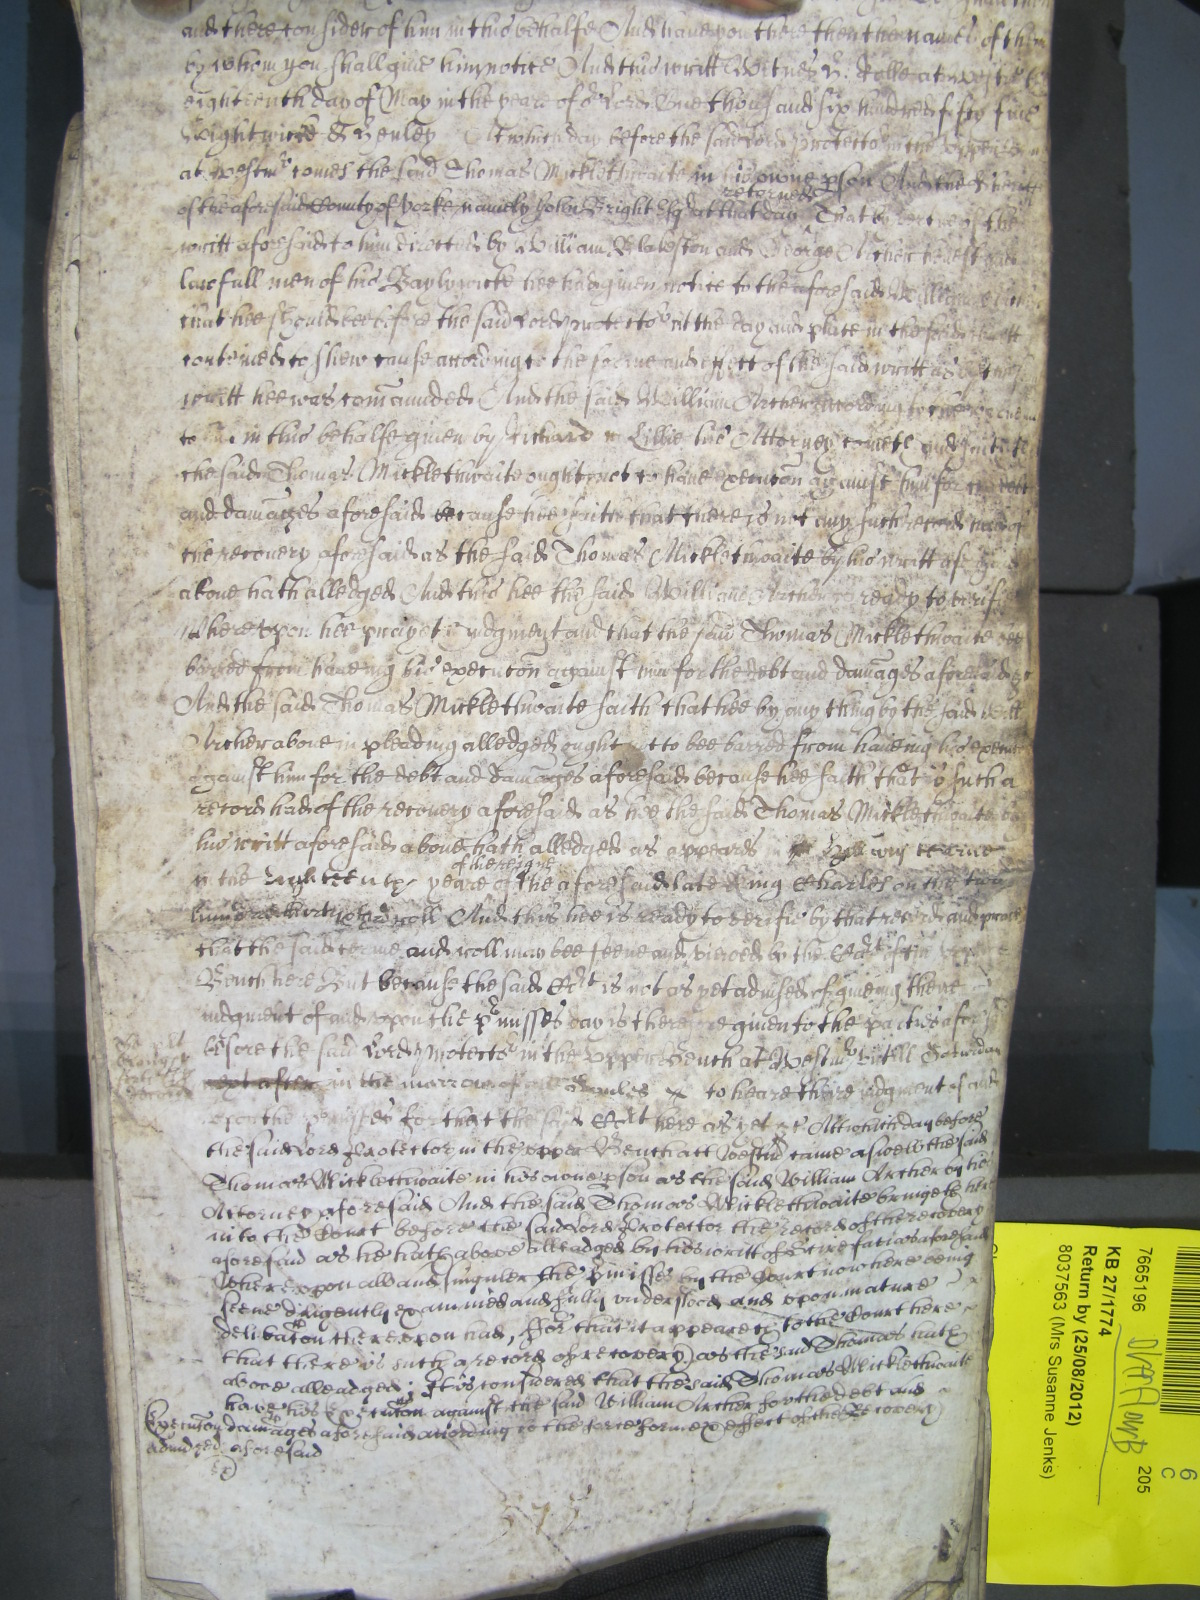 and there consider of him in this behalfe And have you there then the names of them
by whom you shall give him notice And this writt Witnes H. Rolle at Westm
eighteenth day of May in the yeare of or Lord One thousand six hundred fifty five
Wightwicke & Henley At which day before the said Lord Protector in the upper
at Westmr comes the said Thomas Micklethwaite in his owne pson And the Sheriffe
returned
of the aforesaid County of Yorke namely John Bright Esq at that day That by vertue of the
writt aforesaid to him directed by William Blakeston and George Archer honest and
lawfull men of his Baylywicke hee had given notice to the aforesaid William
that hee should bee before the said Lord Protector at the day and place in the said writt
conteined to shew cause according to the forme and effect of the said writt as by that
writt hee was comanded And the said William Archer according to the
to him in this behalfe given by Richard Lillie his Attorney cometh and
the said Thomas Micklethwaite ought not to have execucon against him for the debt
and damages aforesaid because hee saith that there is not any such record had of
the recovery aforesaid as the said Thomas Micklethwaite by his writt aforesaid
above hath alledged And this hee the said William Archer is ready to verifie
Whereupon hee prayeth judgment and that the said Thomas Micklethwaite bee
barred from haveing his execucon against him for the debt and damages aforesaid &c
And the said Thomas Micklethwaite saith that hee by any thing by the said Will
Archer above in pleading alledged ought not to bee barred from haveing his execucon
against him for the debt and damages aforesaid because hee saith that is such a
record had of the recovery aforesaid as hee the said Thomas Micklethwaite by
his writt aforesaid above hath alledged as appears in terme
of the reigne
in the yeare of the aforesaid late King Charles on the two
hundred roll And this hee is ready to verifie by that record and prayes
that the said terme and roll may bee seene and viewed by the Cort of the upper
Bench here But because the said Cort is not as yet advised of giveing there
judgment of and upon the pmisses day is therefore given to the parties aforesd
before the said Lord Protector in the upper Bench at Westmr untill Saturday
next after in the morrow of all Soules to heare there judgment of and
upon the pmisses for that the said Cort here as yet &c At which day before
the said Lord Protector in the upper Bench att Westmr came aswell the said
Thomas Micklethwaite in his owne pson as the said William Archer by his
Attorney aforesaid And the said Thomas Micklethwaite bringeth here
into the Court before the said Lord Protector the record of the recovery
aforesaid as he hath above alleadged by his writt of Scire facias aforesaid
Whereupon all and singuler the pmisses by the Court now here being
seene diligently examined and fully understood and upon mature
deliberacon thereupon had, ffor that it appeareth to the Court here
that there is such a record of recovery as the said Thomas hath
above alleadged; It is considered that the said Thomas Micklethwaite
have his execucon against the said William Archer for the debt and
Execucon damages aforesaid according to the force forme & effect of the Recovery
adiudged aforesaid
575
7665196
KB 27/1774
Return by (25/08/2012)
8037563 (Mrs Susanne Jenks)
205
6
C